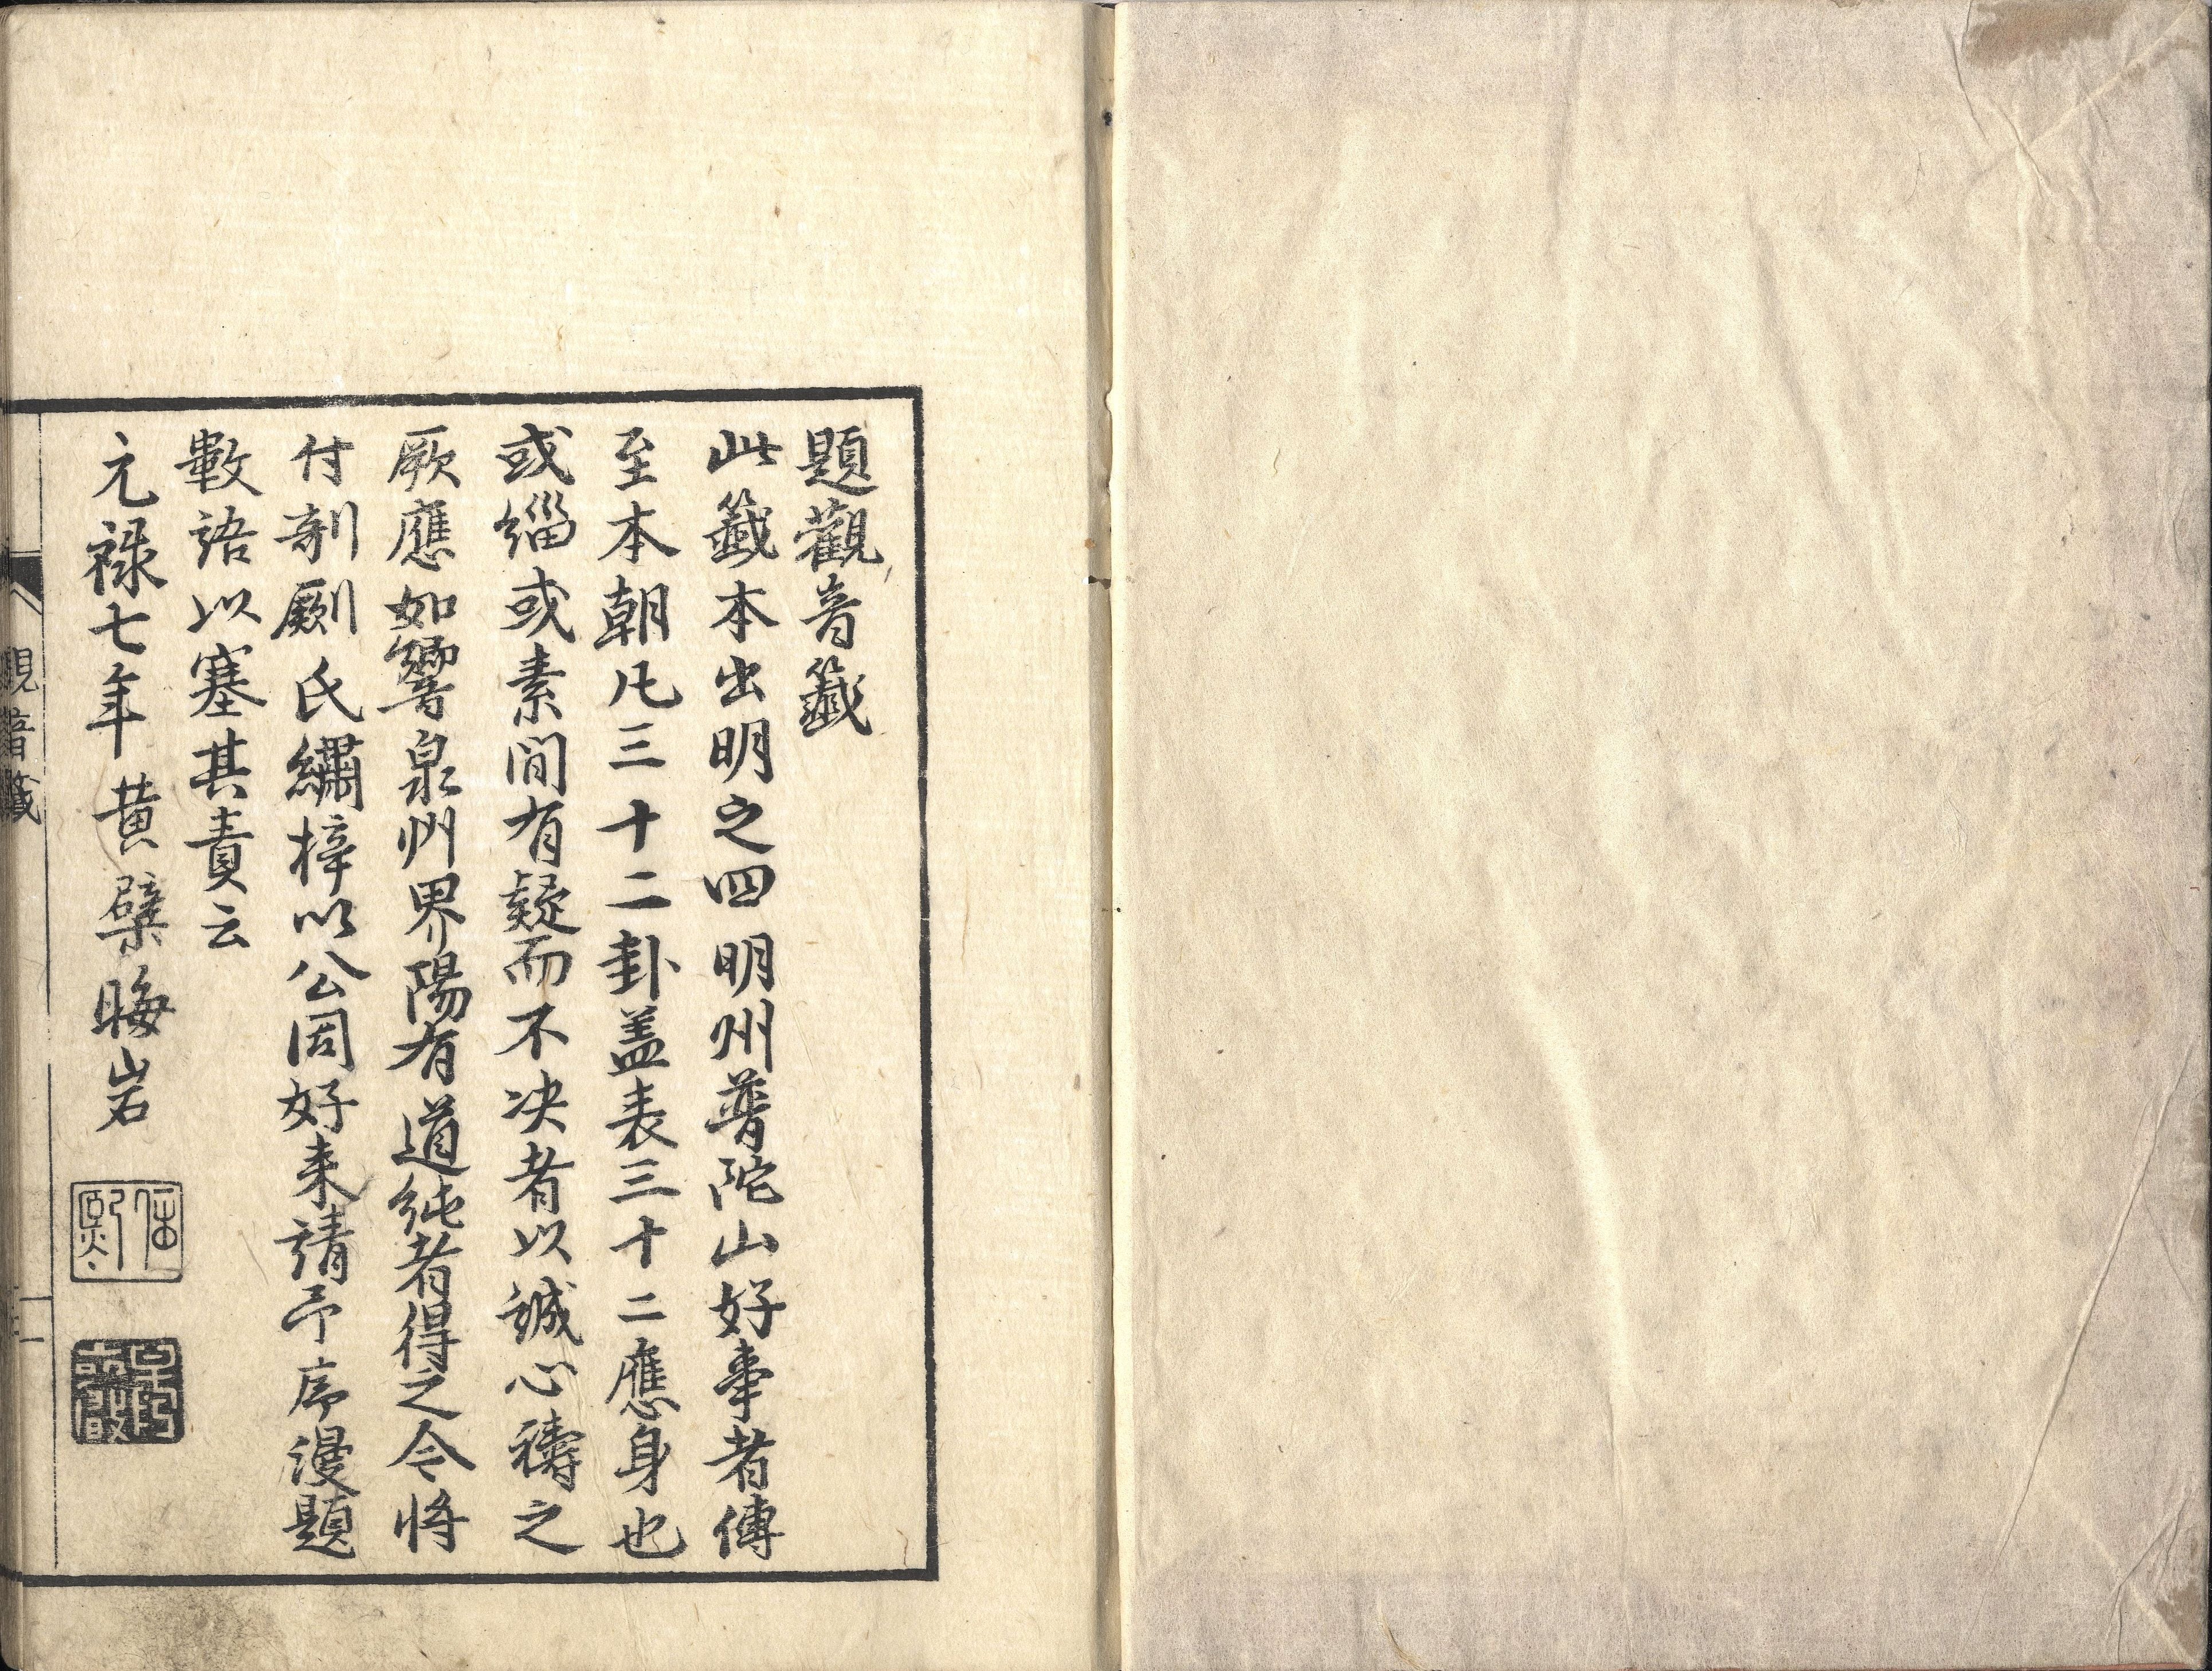 題觀音籤
此籤本出明之四明州普陀山好事者傳
至本朝凡三十二卦盖表三十二應身也
或緇或素間有疑而不决者以誠心禱之
厥應如響泉州界陽有道純者得之今将
付剞劂氏繡梓以公同好来請予序漫題
數語以塞其責云
元禄七年黄檗晦岩
觀音籤